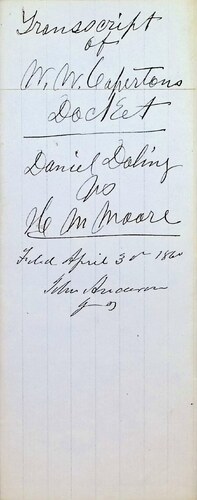 Transcript
of
W. W. Capertons
Docket
Daniel Doling
vs
H M Moore
Filed April 3d 1860
John Anderson